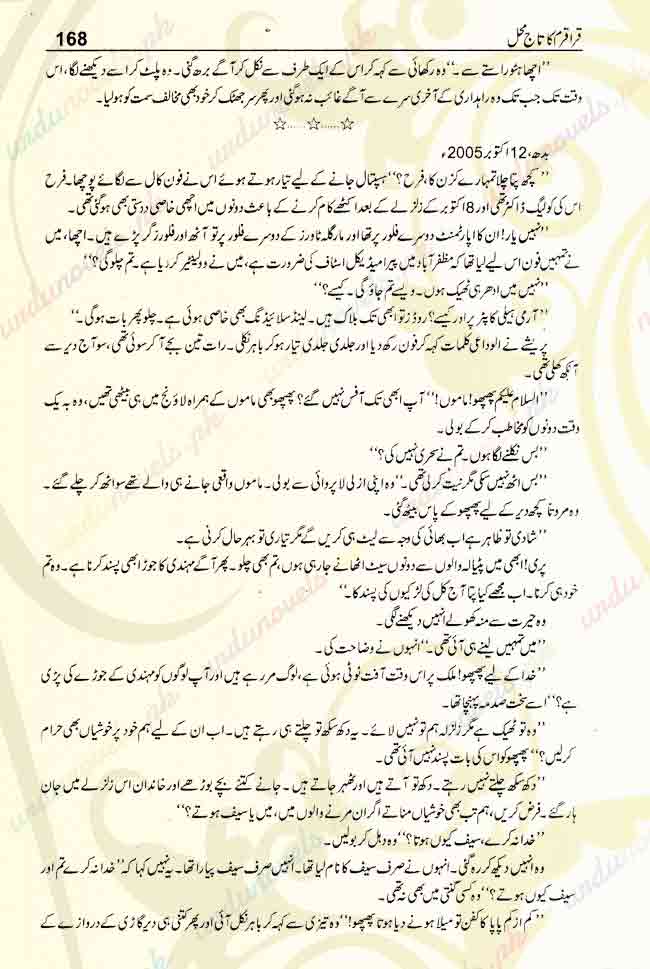 168 قراقرم کا تاج محل
”اچھا ہٹو راستے سے۔“ وہ رکھائی سے کہہ کر اس کے ایک طرف سے نکل کر آگے بڑھ گئی۔ وہ پلٹ کر اسے دیکھنے لگا، اس
وقت تک جب تک وہ راہداری کے آخری سرے سے آگے غائب نہ ہو گئی اور پھر سر جھٹک کر خود بھی مخالف سمت کو ہو لیا۔
☆......☆......☆
بدھ، 12 اکتوبر 2005ء
”کچھ پتا چلا تمہارے کزن کا، فرح؟“ ہسپتال جانے کے لیے تیار ہوتے ہوئے اس نے فون کال سے لگائے پوچھا۔ فرح
اس کی کولیگ ڈاکٹر تھی اور 8 اکتوبر کے زلزلے کے بعد اکٹھے کام کرنے کے باعث دونوں میں اچھی خاصی دوستی بھی ہو گئی تھی۔
”نہیں یار! ان کا اپارٹمنٹ دوسرے فلور پر تھا اور مارگلہ ٹاورز کے دوسرے فلور پر تو آٹھ اور فلورز گر پڑے ہیں۔ اچھا، میں
نے تمہیں فون اس لیے لیا تھا کہ مظفر آباد میں پیرا میڈیکل اسٹاف کی ضرورت ہے، میں نے وولینٹیر کر دیا ہے۔ تم چلو گی؟“
”نہیں میں ادھر ہی ٹھیک ہوں۔ ویسے تم جاؤ گی۔ کیسے؟“
”آرمی ہیلی کاپٹر پر اور کیسے؟ روڈز تو ابھی تک بلاک ہیں۔ لینڈ سلائیڈنگ بھی خاصی ہوئی ہے۔ چلو پھر بات ہو گی۔“
پریشے نے الوداعی کلمات کہہ کر فون رکھ دیا اور جلدی جلدی تیار ہو کر باہر نکلی۔ رات تین بجے آ کر سوئی تھی، سو آج دیر سے
آنکھ کھلی تھی۔
”السلام علیکم پھپھو! ماموں!“ آپ ابھی تک آفس نہیں گئے؟ پھپھو بھی ماموں کے ہمراہ لاؤنج میں ہی بیٹھی تھیں، وہ بہ یک
وقت دونوں کو مخاطب کر کے بولی۔
”بس نکلنے لگا ہوں۔ تم نے سحری نہیں کی؟“
”بس اٹھ نہیں سکی مگر نیت کر لی تھی۔“ وہ اپنی ازلی لاپروائی سے بولی۔ ماموں واقعی جانے ہی والے تھے سو اٹھ کر چلے گئے۔
وہ مروتاً کچھ دیر کے لیے پھپھو کے پاس بیٹھ گئی۔
”شادی تو ظاہر ہے اب بھائی کی وجہ سے لیٹ ہی کریں گے مگر تیاری تو بہر حال کرنی ہے۔
پری! ابھی میں پٹیالہ والوں سے دونوں سیٹ اٹھانے جا رہی ہوں، تم بھی چلو۔ پھر آگے مہندی کا جوڑا بھی پسند کرنا ہے۔ وہ تم
خود ہی کرنا۔ اب مجھے کیا پتا آج کل کی لڑکیوں کی پسند کا۔“
وہ حیرت سے منہ کھولے انہیں دیکھنے لگی۔
”میں تمہیں لینے ہی آئی تھی۔“ انہوں نے وضاحت کی۔
”خدا کے لیے پھپھو! ملک پر اس وقت آفت ٹوٹی ہوئی ہے، لوگ مر رہے ہیں اور آپ لوگوں کو مہندی کے جوڑے کی پڑی
ہے؟“ اسے سخت صدمہ پہنچا تھا۔
”وہ تو ٹھیک ہے مگر زلزلہ ہم تو نہیں لائے۔ یہ دکھ سکھ تو چلتے ہی رہتے ہیں۔ اب ان کے لیے ہم خود پر خوشیاں بھی حرام
کر لیں؟“ پھپھو کو اس کی بات پسند نہیں آئی تھی۔
”دکھ سکھ چلتے نہیں رہتے۔ دکھ تو آتے ہیں اور ٹھہر جاتے ہیں۔ جانے کتنے بچے بوڑھے اور خاندان اس زلزلے میں جان
ہار گئے۔ فرض کریں، ہم تب بھی خوشیاں مناتے اگر ان مرنے والوں میں، میں یا سیف ہوتے؟“
”خدا نہ کرے، سیف کیوں ہوتا؟“ وہ دہل کر بولیں۔
وہ انہیں دیکھ کر رہ گئی۔ انہوں نے صرف سیف کا نام لیا تھا۔ انہیں صرف سیف پیارا تھا۔ یہ نہیں کہا کہ ”خدا نہ کرے تم اور
سیف کیوں ہوتے؟“ وہ کسی گنتی میں بھی نہ تھی۔
”کم از کم پاپا کا کفن تو میلا ہونے دیا ہوتا پھپھو!“ وہ تیزی سے کہہ کر باہر نکل آئی اور پھر کتنی ہی دیر گاڑی کے دروازے کے
urdunovels.pk